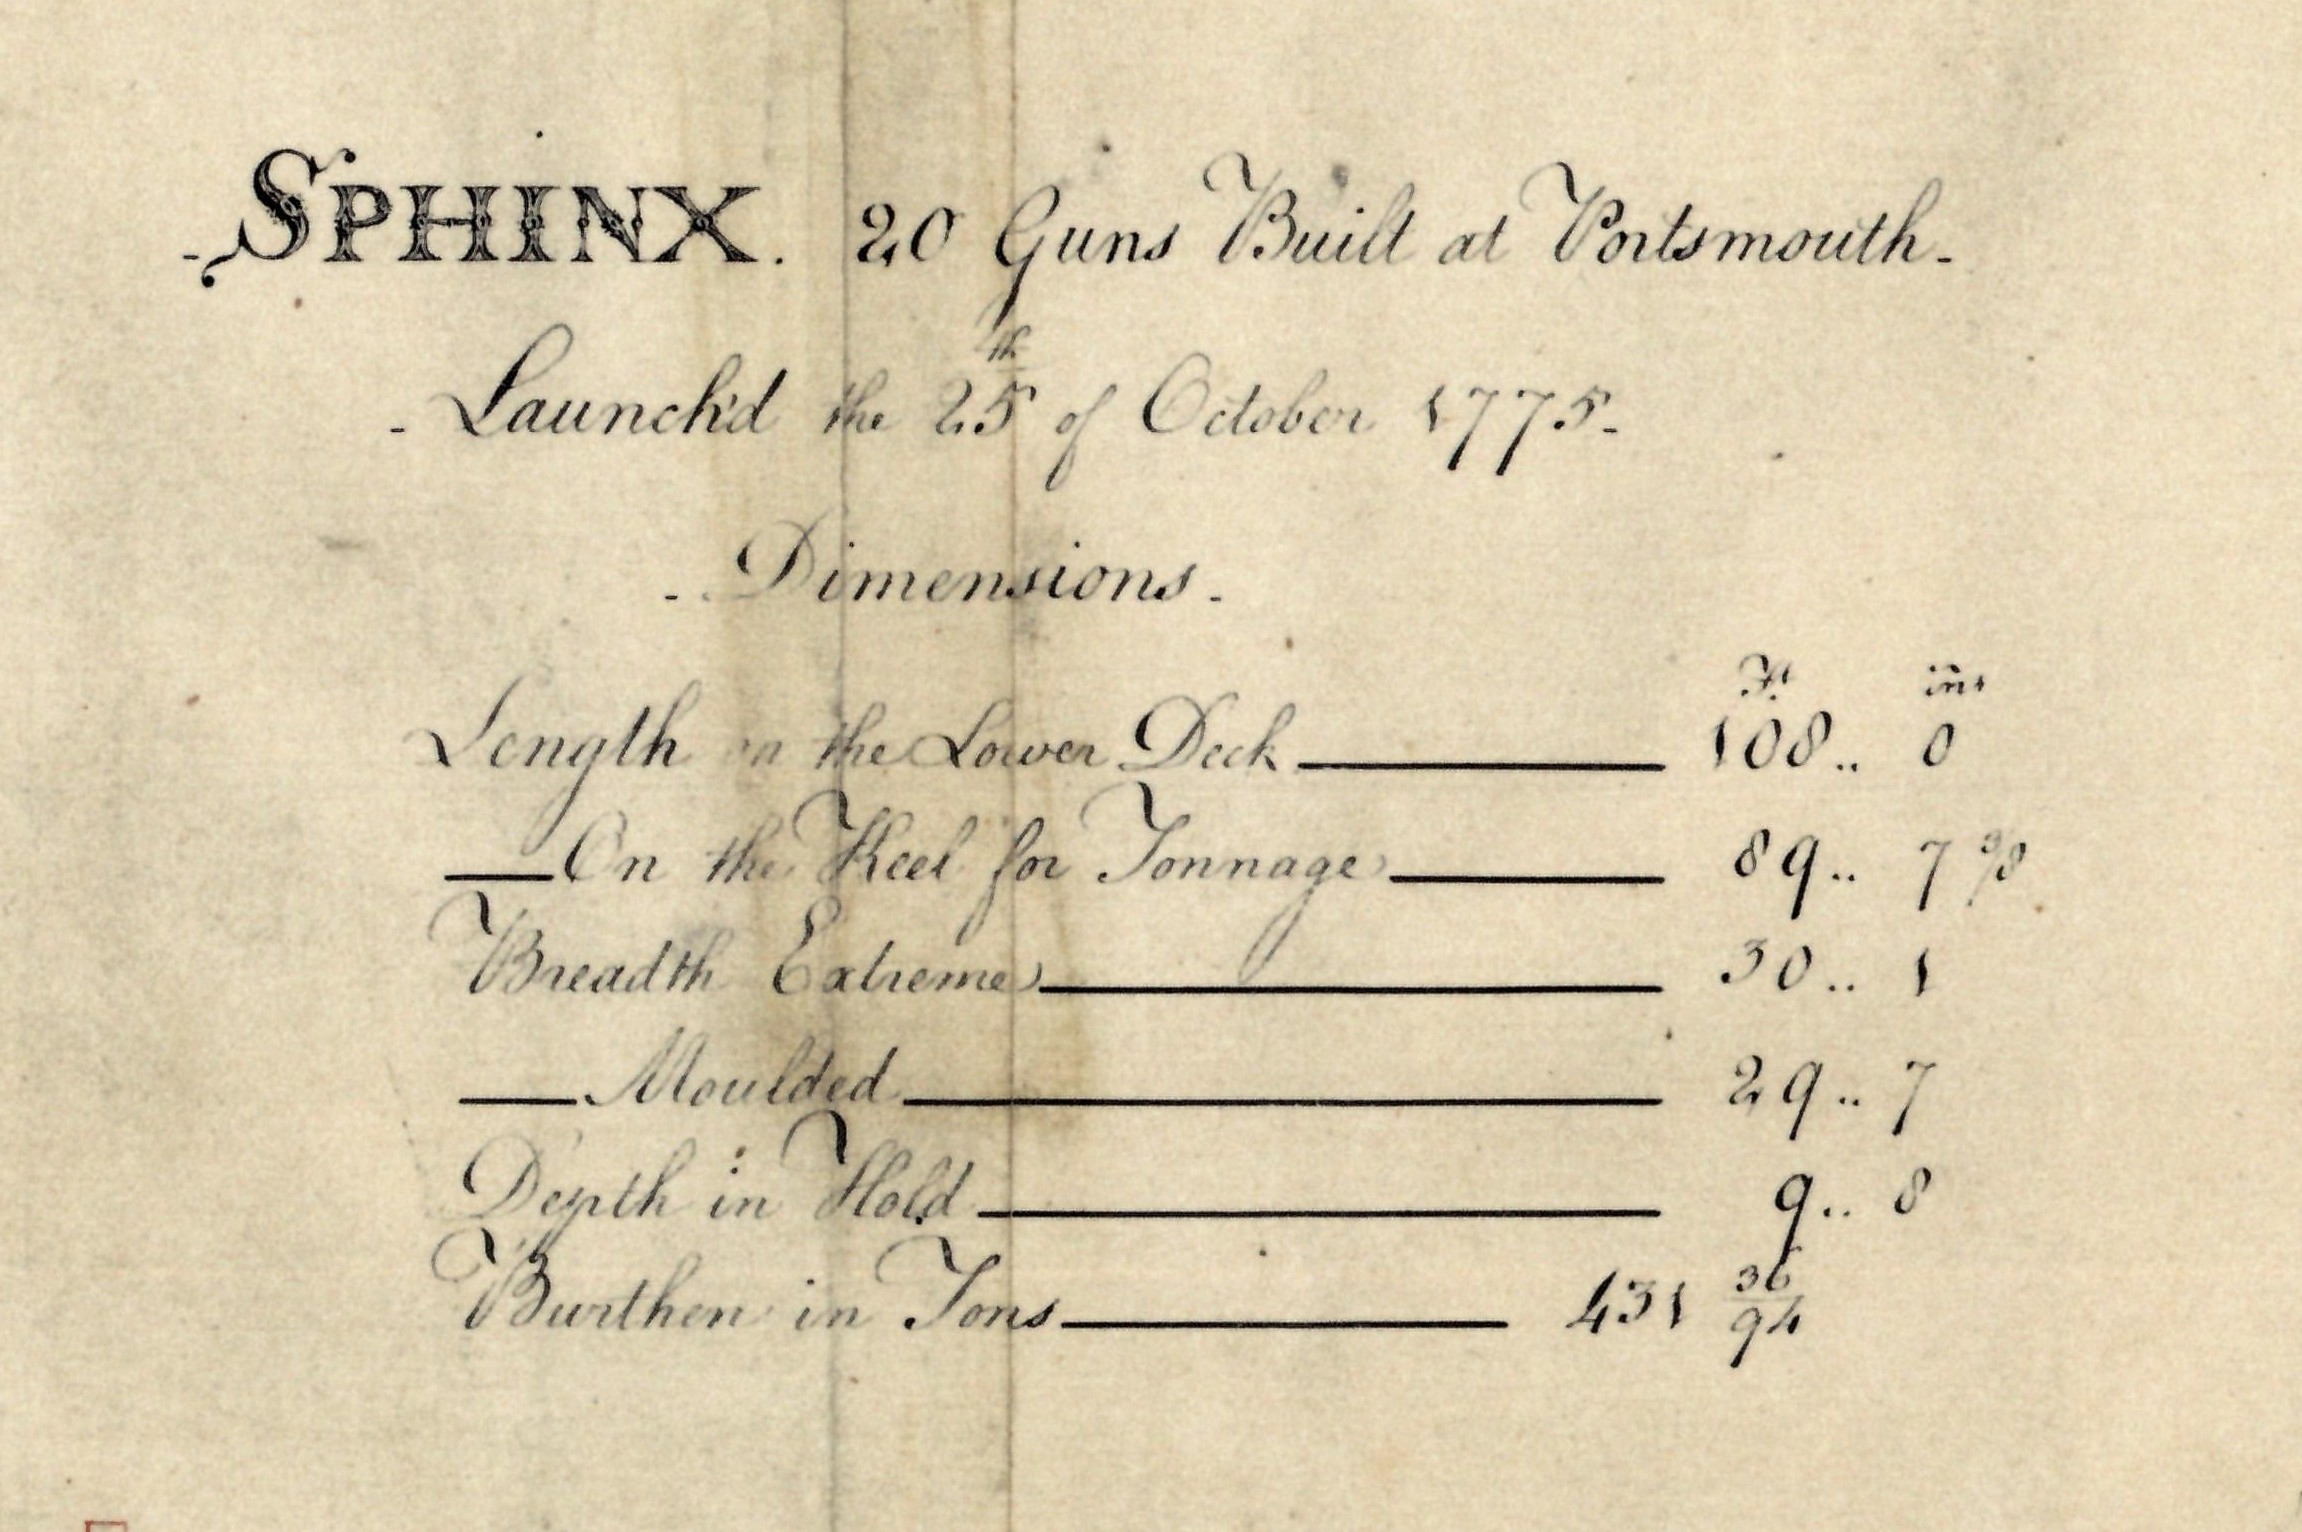 SPHINX. 20 Guns Built at Portsmouth.
Launch'd the 25th of October 1775.
Dimensions.
Ft ins
Length on the Lower Deck 108.. 0
On the Keel for Tonnage 89.. 7 3/8
Breadth Extreme 30.. 1
Moulded 29.. 7
Depth in Hold 9.. 8
Burthen in Tons 431 36/94